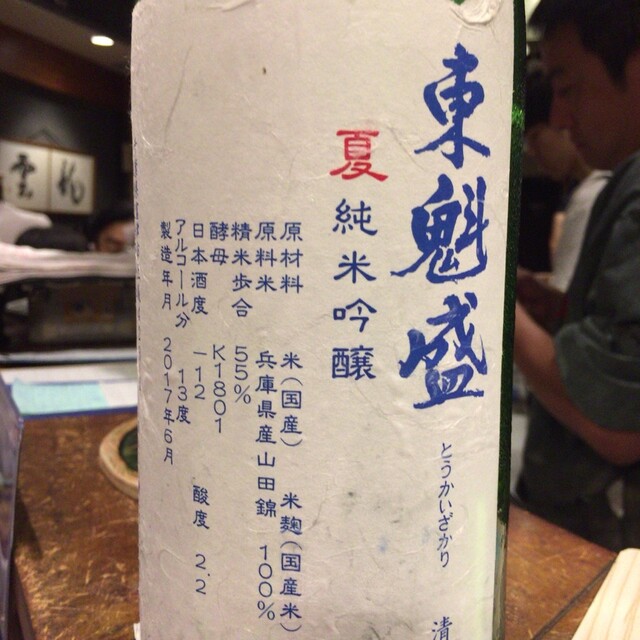 東魁盛
とうかいざかり
清
夏
純米吟醸
原材料 米(国産) 米麹(国産米)
原料米 兵庫県産山田錦 100%
精米歩合 55%
酵母 K1801
日本酒度 -12 酸度 2.2
アルコール分 13度
製造年月 2017年6月
雲